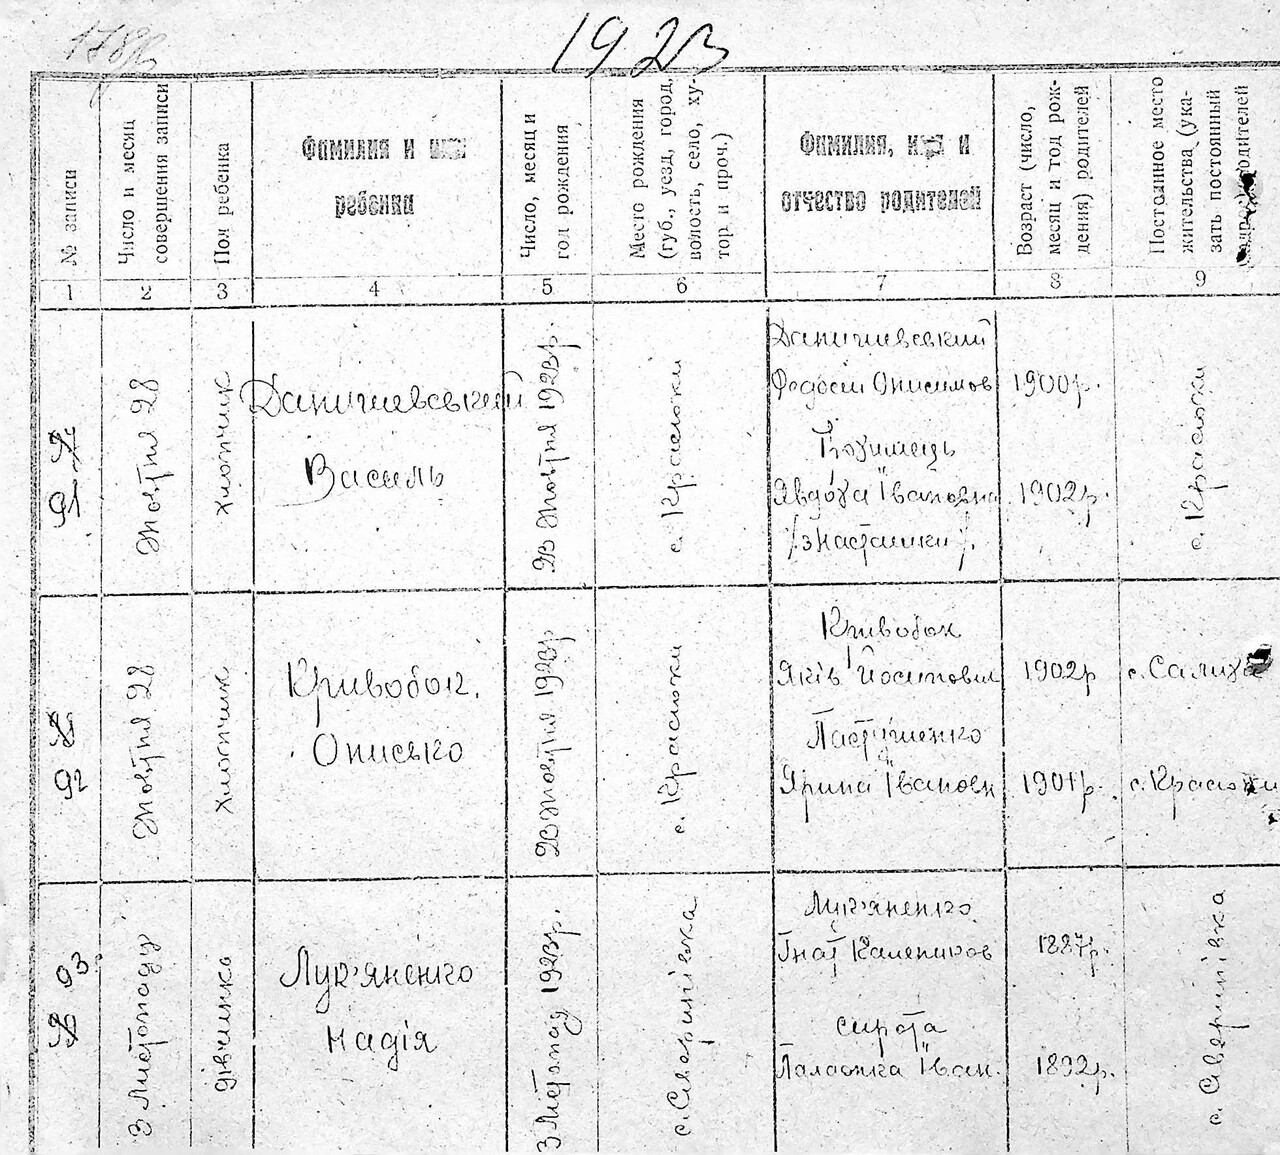 1923
№ записи
Число и месяц
совершения записи
Пол ребенка
Фамилия и имя
ребенка
Число, месяц и
год рождения
Место рождения
(губ., уезд, город,
волость, село, ху-
тор и проч.)
Фамилия, имя и
отчество родителей
Возраст (число,
месяц и год рож-
дения) родителей
Постоянное место
жительства (ука-
зать постоянный
родителей
1 2 3 4 5 6 7 8 9
91
Жовтня 28
Хлопчик
Данишевський
Василь
23 Жовтня 1923р.
с. Красюки
Данишевський
Федосій Онисимов
Явдоха Івановна
/з Насташки/.
1900р.
1902р.
с. Красюки
92
Жовтня 28
Хлопчик
Кривобок.
Онисько
23 Жовтня 1923р
с. Красюки
Кривобок
Яків Йосипович
Пастушенко
Ярина Івановн
1902р
1901р.
с. Салиха
с. Красюки
93
3 Листопаду
дівчинка
Лук'яненко
Надія
3 Листопад 1923р.
с. Северинівка
Лук'яненко
Гнат Калеников
сирота
Палажка Іван.
1887р.
1892р.
с. Северинівка